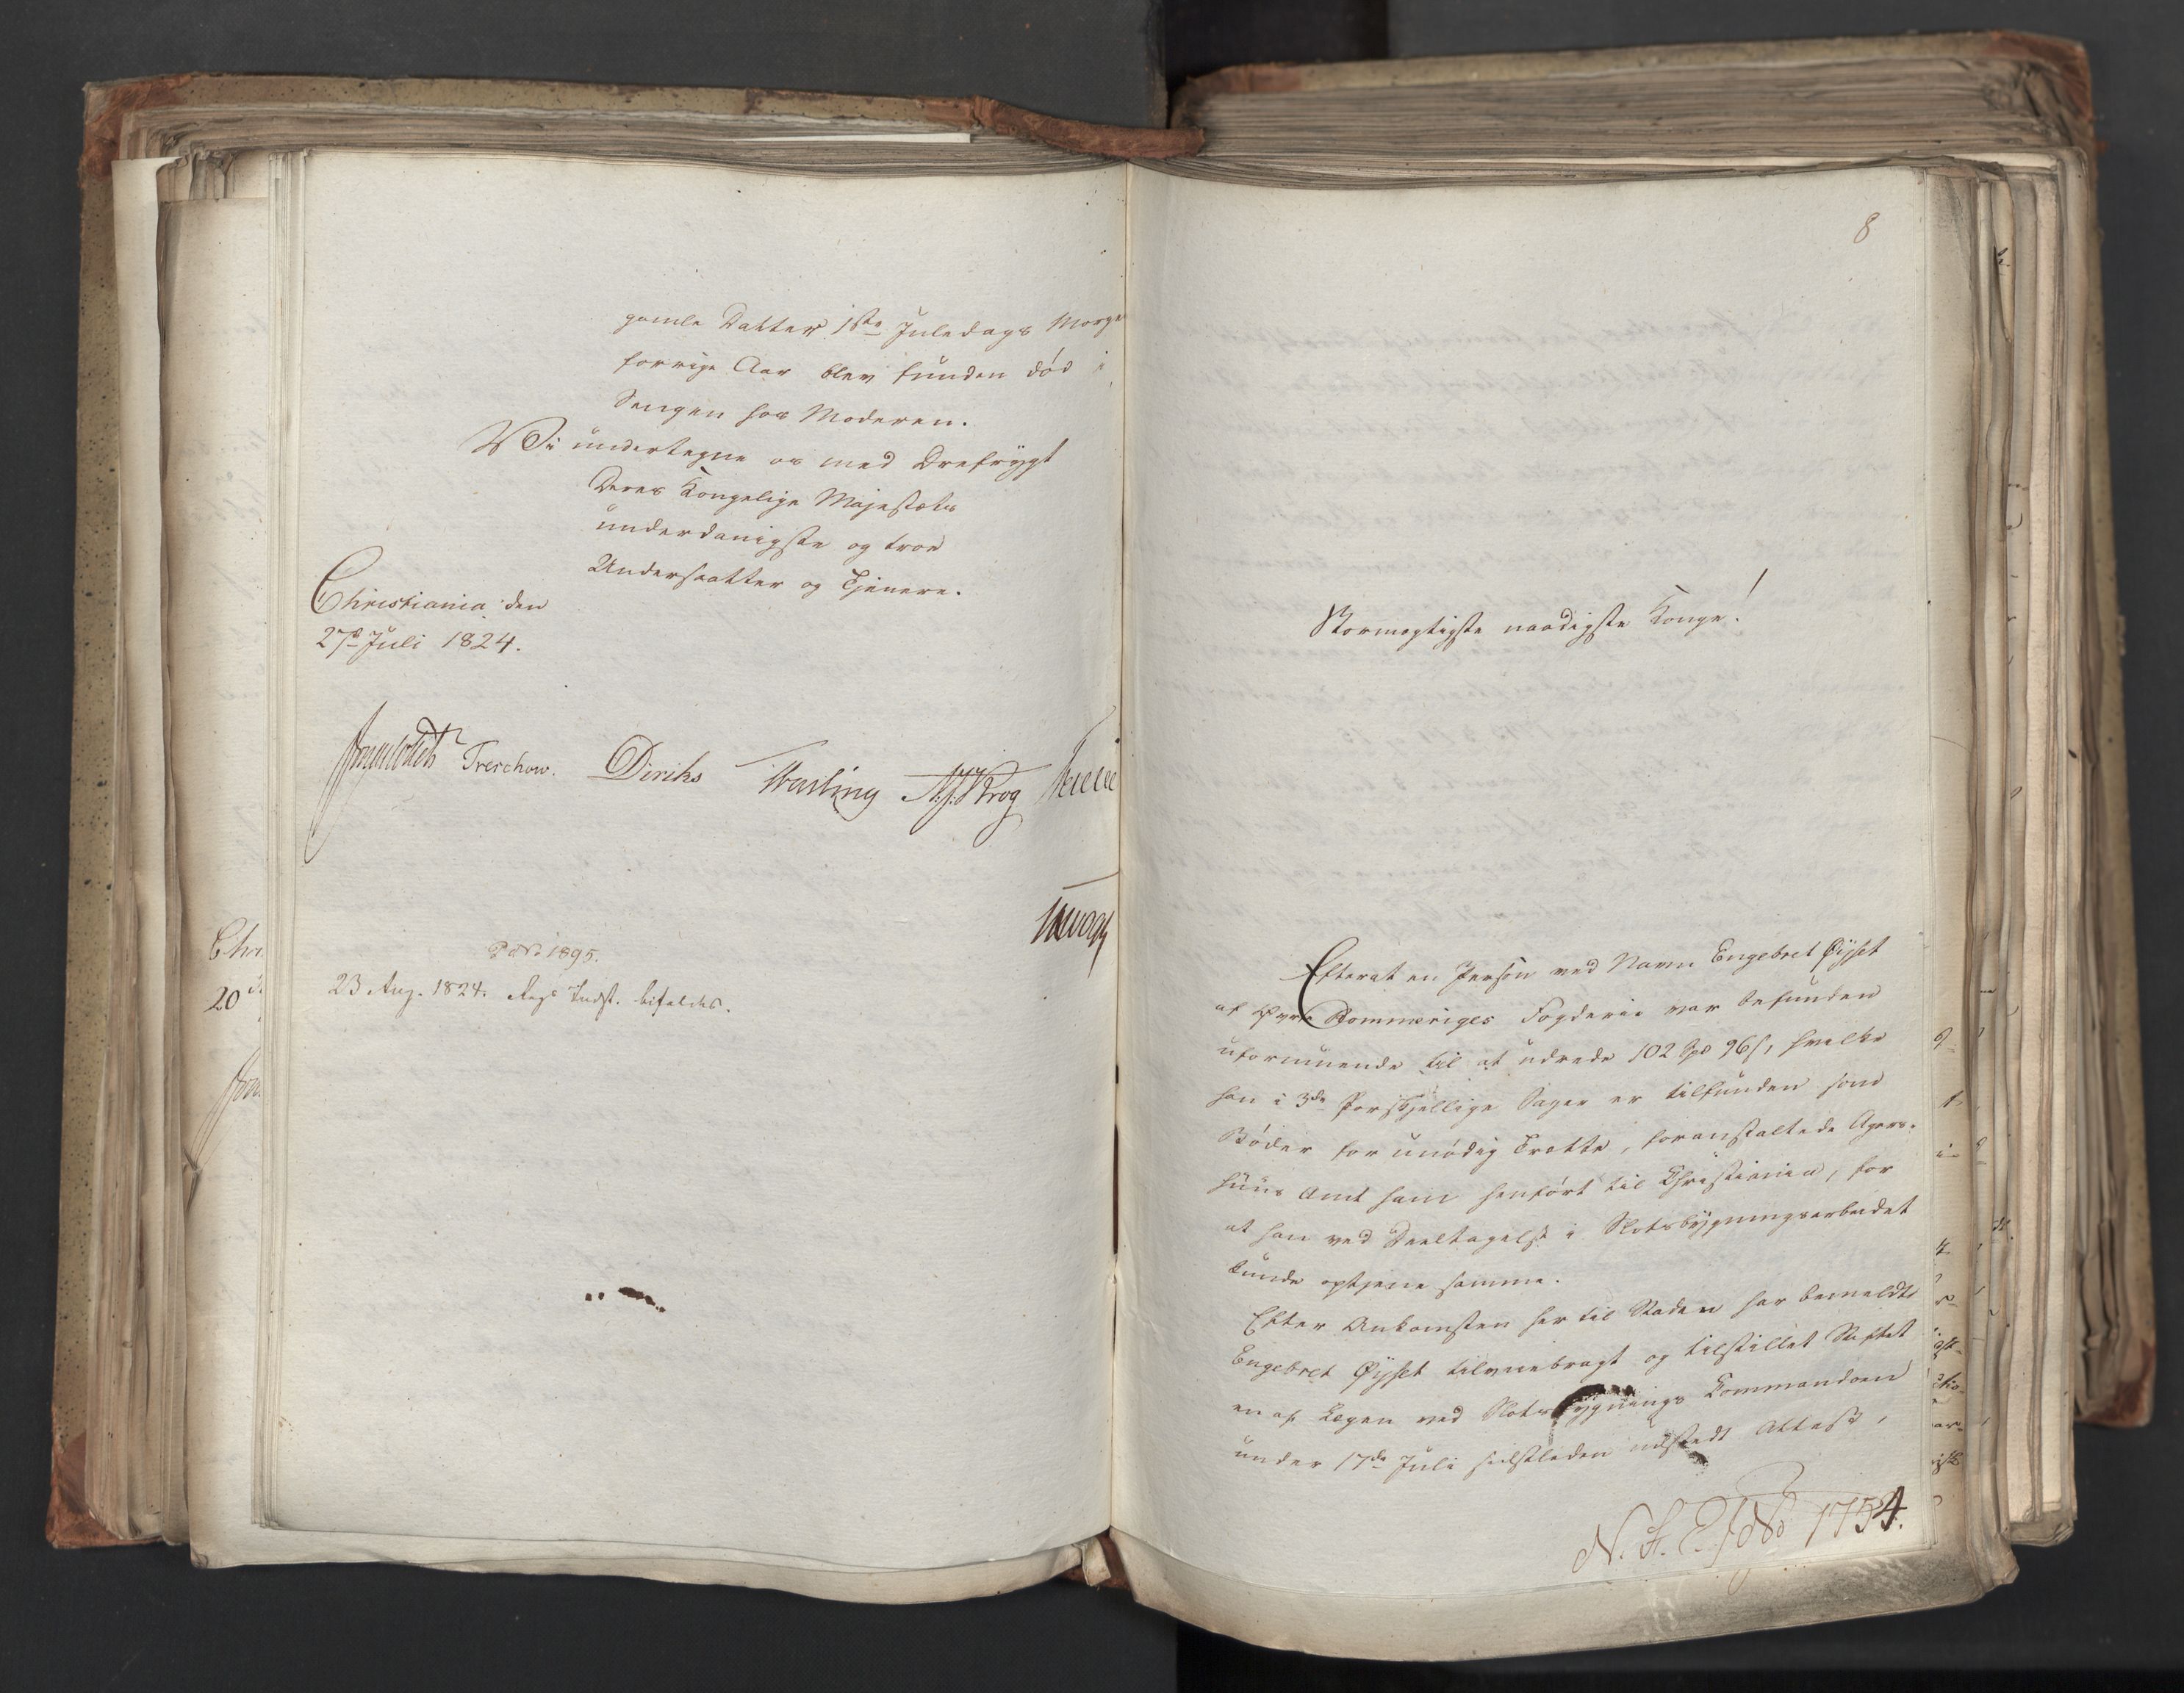 gamle Datter 1ste Juledags Morge
forrige Aar blev funden død i
Sengen hos Moderen.
Vi undertegne os med Ærefrygt
Deres Kongelige Majestæts
underdanigste og troe
Undersaatter og Tjenere.
Christiania den
27de Juli 1824.
Treschow. Diriks Fasting Krog
P No 1895.
23 Aug. 1824. Regs Indst. bifaldes.
8
Stormægtigste naadigste Konge!
Efterat en Person ved Navn Engebret Øijset
af Øvre Rommeriges Fogderie var befunden
uformuende til at udrede 102 Spd 96 s, hvilke
han i 3de forskjellige Sager er tilfunden som
Bøder for unødig Trætte, foranstaltede Agers-
huus Amt ham henført til Christiania, for
at han ved Deeltagelse i Slotsbygningsarbeidet
kunde optjene samme.
Efter Ankomsten her til Staden har bemeldte
Engebret Øijset tilveiebragt og tilstillet Stiftet
en af Lægen ved Slotsbygnings Kommandoen
under 17de Juli sidstleden udstedt Attest,
1754.
Chri
20